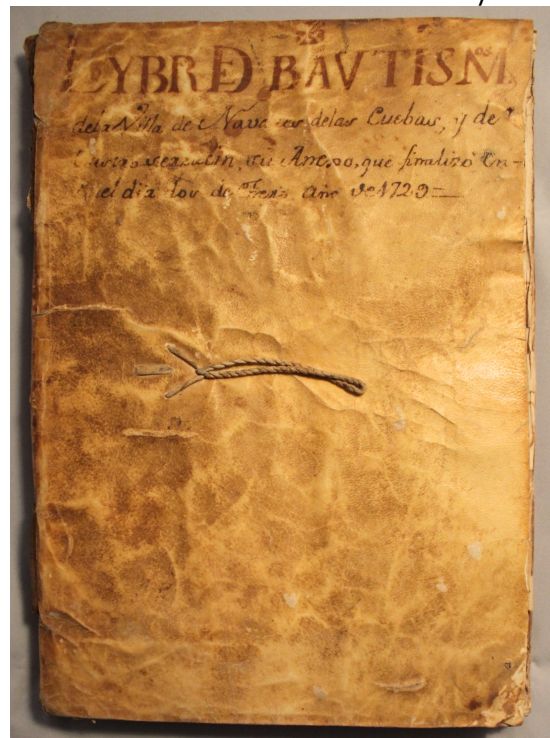 LYBRO D BAVTISM.os
de la Villa de Navares delas Cuebas, y de
su Anexo, que finalizó En
el dia dos de año de 1729